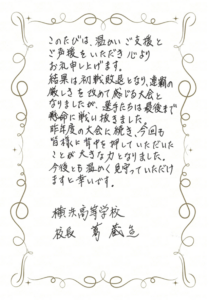 このたびは、温かいご支援と
ご声援をいただき心より
お礼申し上げます。
結果は初戦敗退となり、連覇の
厳しさを改めて感じる大会と
なりましたが、選手たちは最後まで
懸命に戦い抜きました。
昨年度の大会に続き、今回も
皆様に背中を押していただいた
ことが大きな力となりました。
今後とも温かく見守っていただけ
ますと幸いです。
横浜高等学校
校長 葛 蔵造